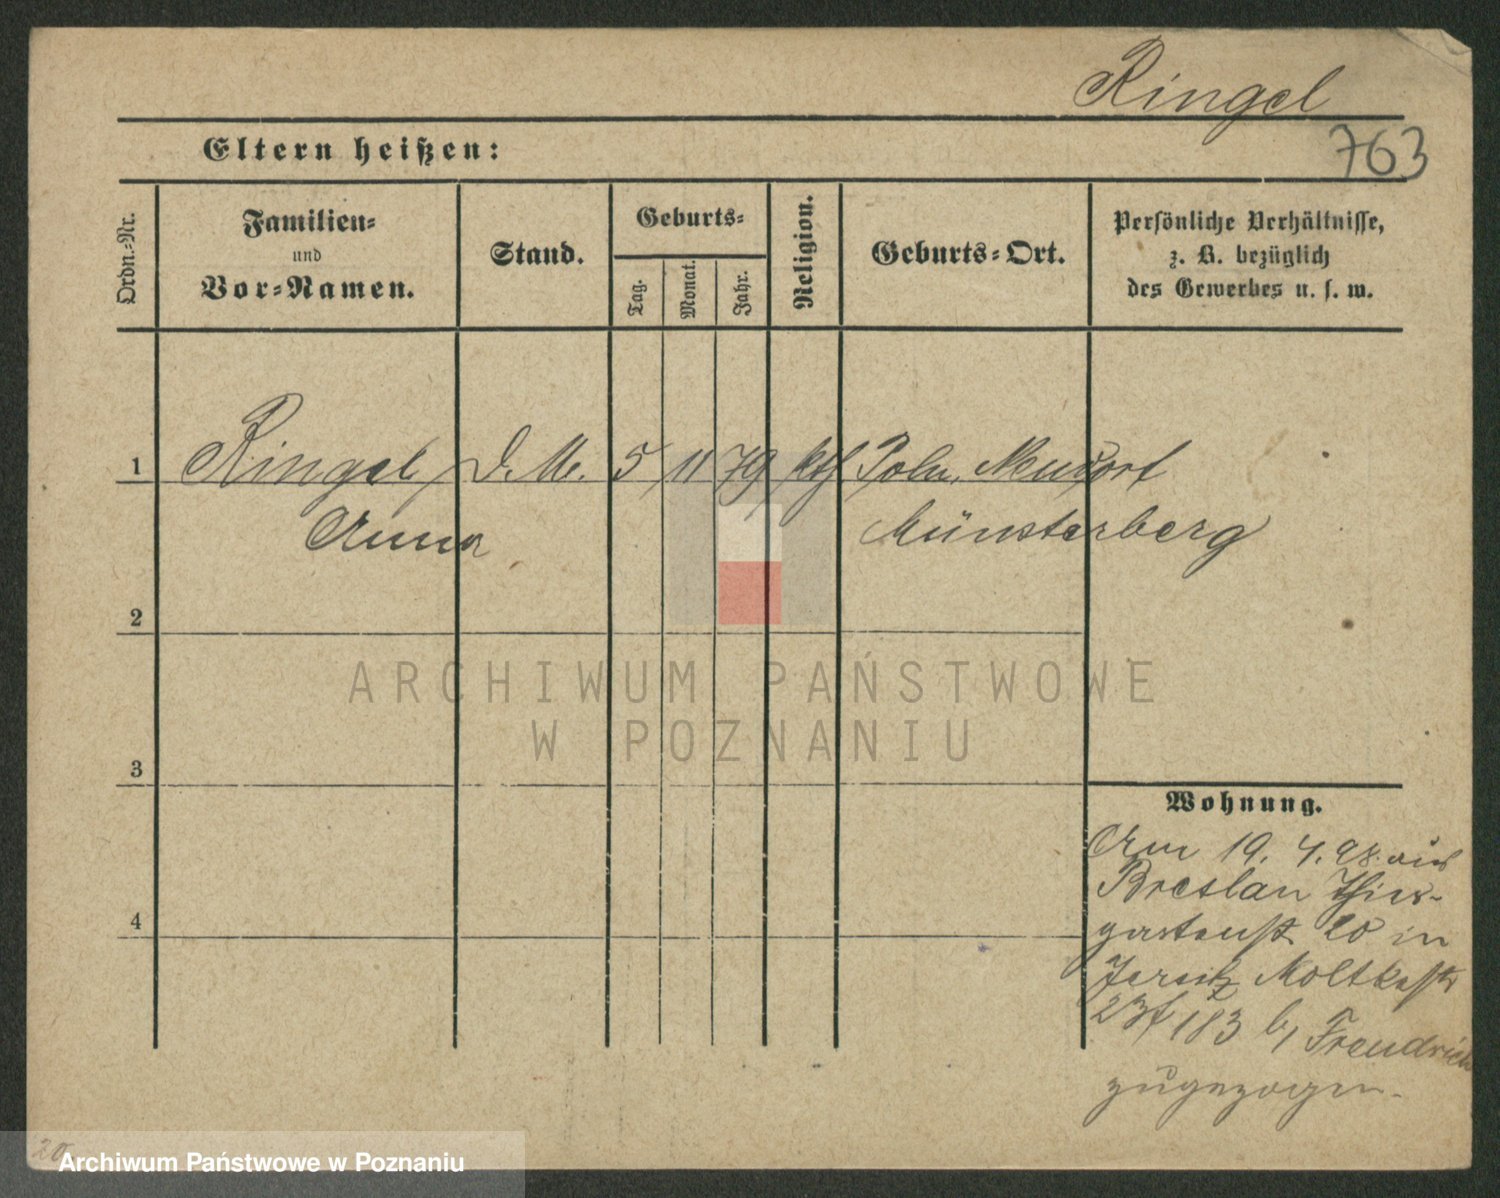 Ringel
763
Eltern heißen:
Ordn.-Nr.
Familien-
und
Vor-Namen.
Stand.
Geburts-
Tag.
Monat.
Jahr.
Religion.
Geburts-Ort.
Persönliche Verhältnisse,
z. B. bezüglich
des Gewerbes u. s. w.
1
Ringel, D. M. 5 11 79 kth Poln. Neudorf
Anna Münsterberg
2
3
4
Wohnung.
Am 19. 4. 98. aus
Breslau Thier-
gartenstr. 20 in
Jersitz Moltkestr
183 b/
zugezogen.
ARCHIWUM PAŃSTWOWE
W POZNANIU
Archiwum Państwowe w Poznaniu